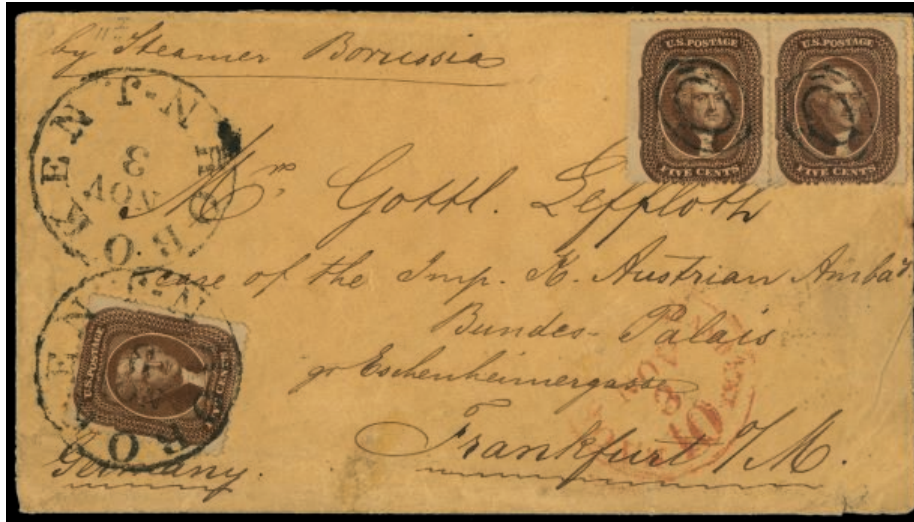 by Steamer Borussia
U.S. POSTAGE
FIVE CENTS
U.S. POSTAGE
FIVE CENTS
HOBOKEN N.J.
NOV
3
Mr. Gottl. Leffloth
care of the Imp. K. Austrian Amba
Bundes-Palais
gr Eschenheimergasse
Frankfurt a/M.
Germany.
HOBOKEN N.J.
U.S. POSTAGE
FIVE CENTS
NOV
3
10